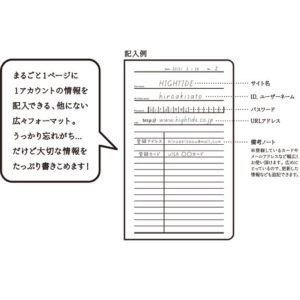 まるごと1ページに
1アカウントの情報を
記入できる、他にない
広々フォーマット。
うっかり忘れがち…
だけど大切な情報を
たっぷり書きこめます!
記入例
HIGHTIDE
サイト名
hiroakisato
ID、ユーザーネーム
パスワード
http:// www.hightide.co.jp
URLアドレス
登録アドレス
備考ノート
登録カード VISA 〇〇カード
※登録しているカードや
メールアドレスなど幅広く
お使い頂けます。広めに
とっているので、更新した
情報なども追記できます。